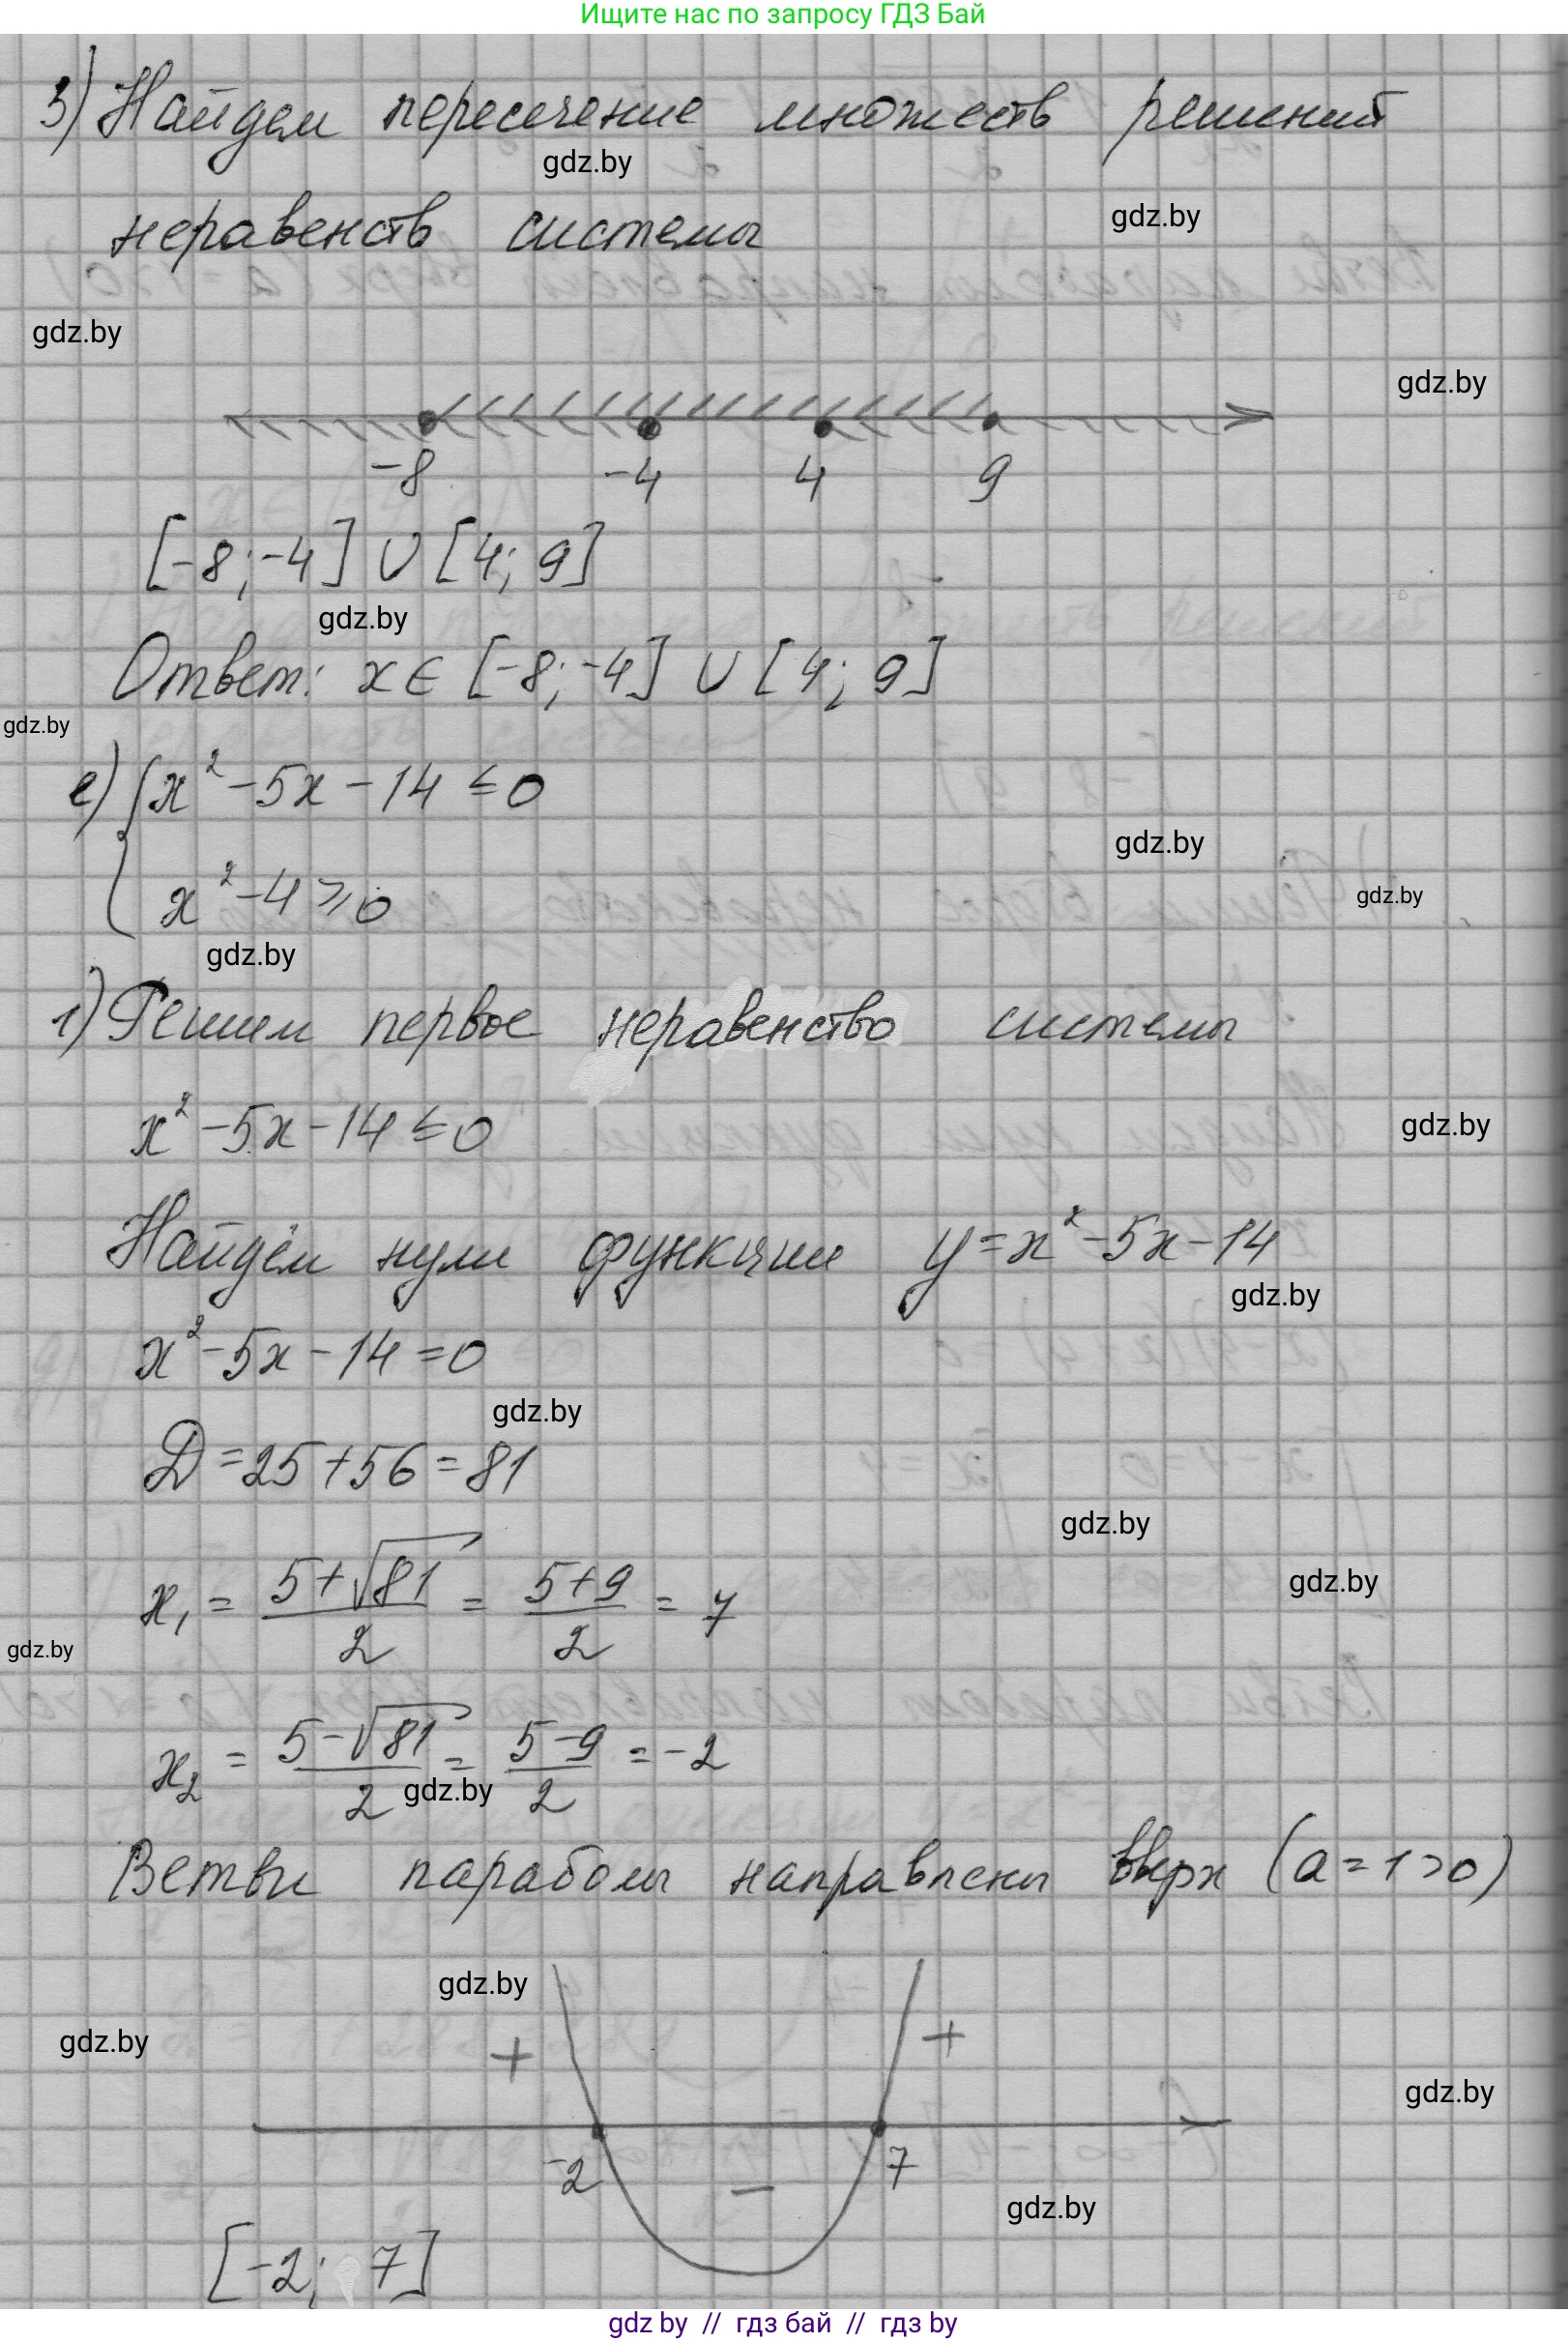 Ищите нас по запросу ГДЗ Бай
3) Найдем пересечение множеств решений
gdz.by
неравенств системы
gdz.by
gdz.by
gdz.by
-8 -4 4 9
[-8; -4] ∪ [4; 9]
gdz.by
Ответ: x ∈ [-8; -4] ∪ [4; 9]
gdz.by
е) { x² - 5x - 14 ≤ 0
gdz.by
x² - 4 ≥ 0
gdz.by
gdz.by
1) Решим первое неравенство системы
x² - 5x - 14 ≤ 0
gdz.by
Найдём нули функции y = x² - 5x - 14
gdz.by
x² - 5x - 14 = 0
gdz.by
D = 25 + 56 = 81
gdz.by
gdz.by
x₁ = (5 + √81)/2 = (5 + 9)/2 = 7
gdz.by
x₂ = (5 - √81)/2 = (5 - 9)/2 = -2
gdz.by
Ветви параболы направлены вверх (a = 1 > 0)
gdz.by
gdz.by
+ +
gdz.by
-2 7
-
gdz.by
[-2; 7]
gdz by // гдз бай // гдз by